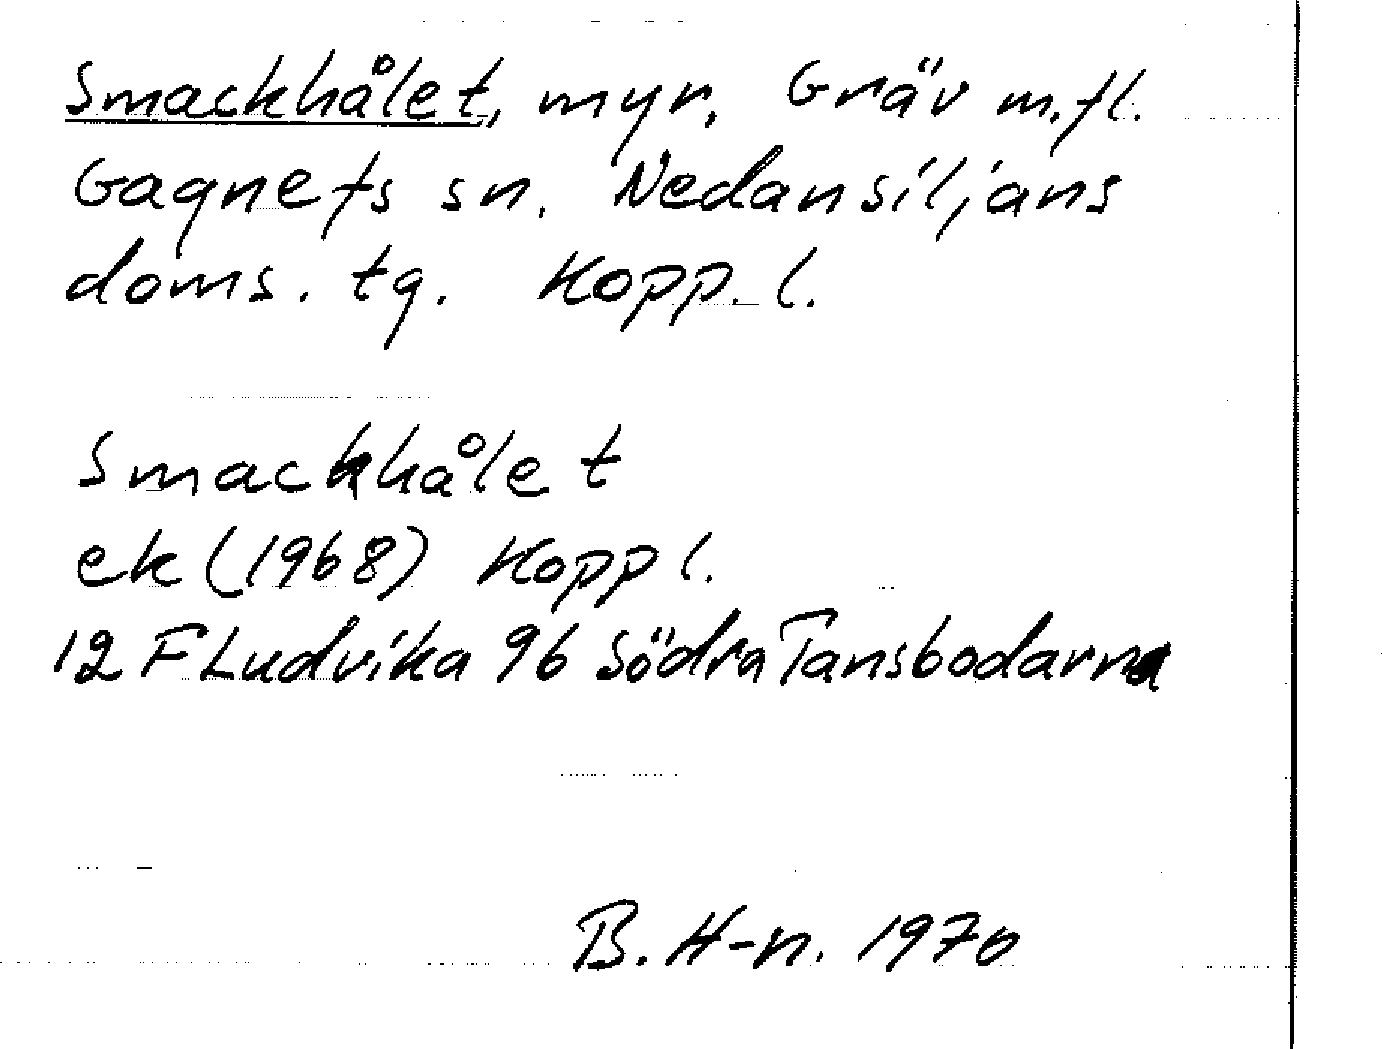 Smackhålet, myr, Gräv m.fl.
Gagnefs sn. Nedansiljans
doms. tg. Kopp. l.
Smackhålet
ek (1968) Kopp l.
12 F Ludvika 96 Södra Tansbodarna
B. H-n. 1970